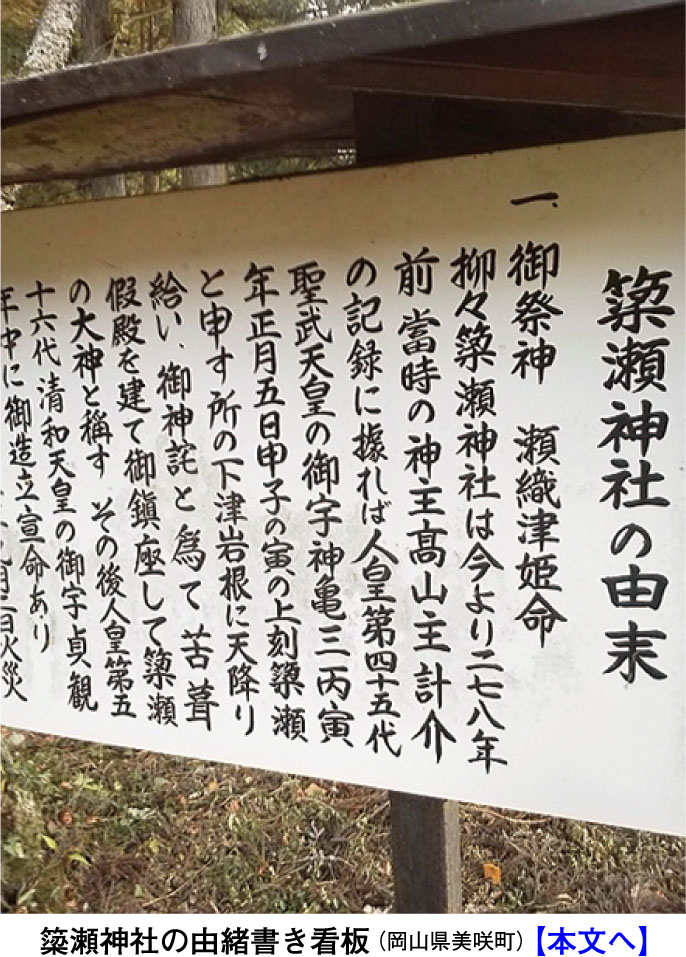 築瀬神社の由来
一、御祭神 瀬織津姫命
抑々築瀬神社は今より二七八年
前當時の神主髙山主計介
の記録に據れば人皇第四十五代
聖武天皇の御宇神亀三丙寅
年正月五日甲子の寅の上刻築瀬
と申す所の下津岩根に天降り
給い、御神託と為て苫葺
假殿を建て御鎮座して築瀬
の大神と稱す その後人皇第五
十六代清和天皇の御宇貞観
年中に御造立宣命あり
月二日火災
簗瀬神社の由緒書き看板(岡山県美咲町)【本文へ】